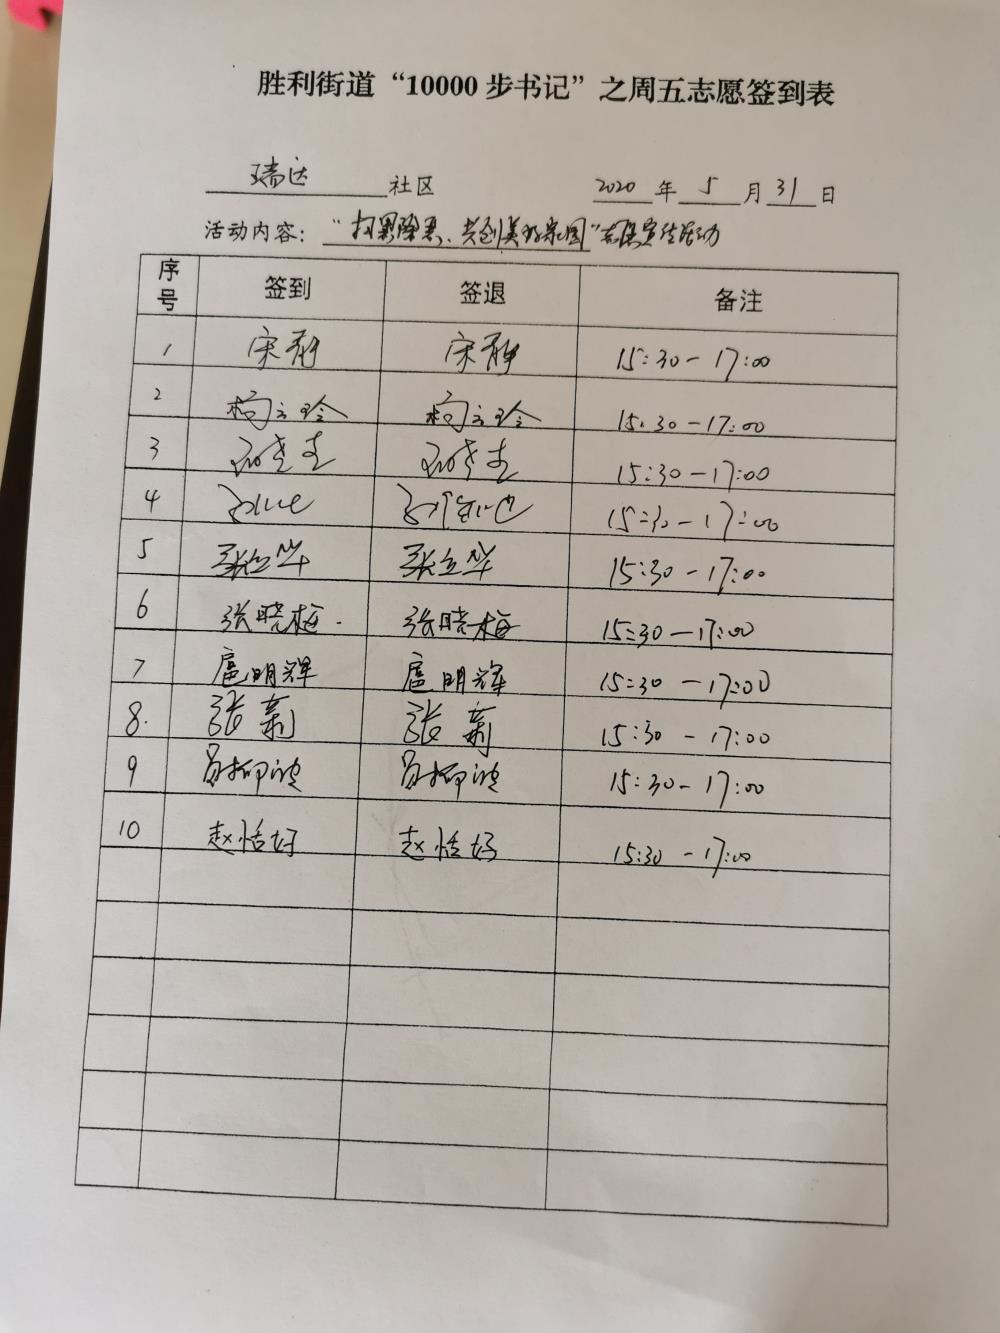 胜利街道“10000步书记”之周五志愿签到表
瑞达 社区 2020 年 5 月 31 日
活动内容：“扫黑除恶、共创美好家园”志愿宣传活动
序号 签到 签退 备注
1 宋静 宋静 15:30-17:00
2 杨立玲 杨立玲 15:30-17:00
3 15:30-17:00
4 15:30-17:00
5 张立华 张立华 15:30-17:00
6 张晓梅 张晓梅 15:30-17:00
7 扈明辉 扈明辉 15:30-17:00
8. 张莉 张莉 15:30-17:00
9 15:30-17:00
10 赵恬好 赵恬好 15:30-17:00